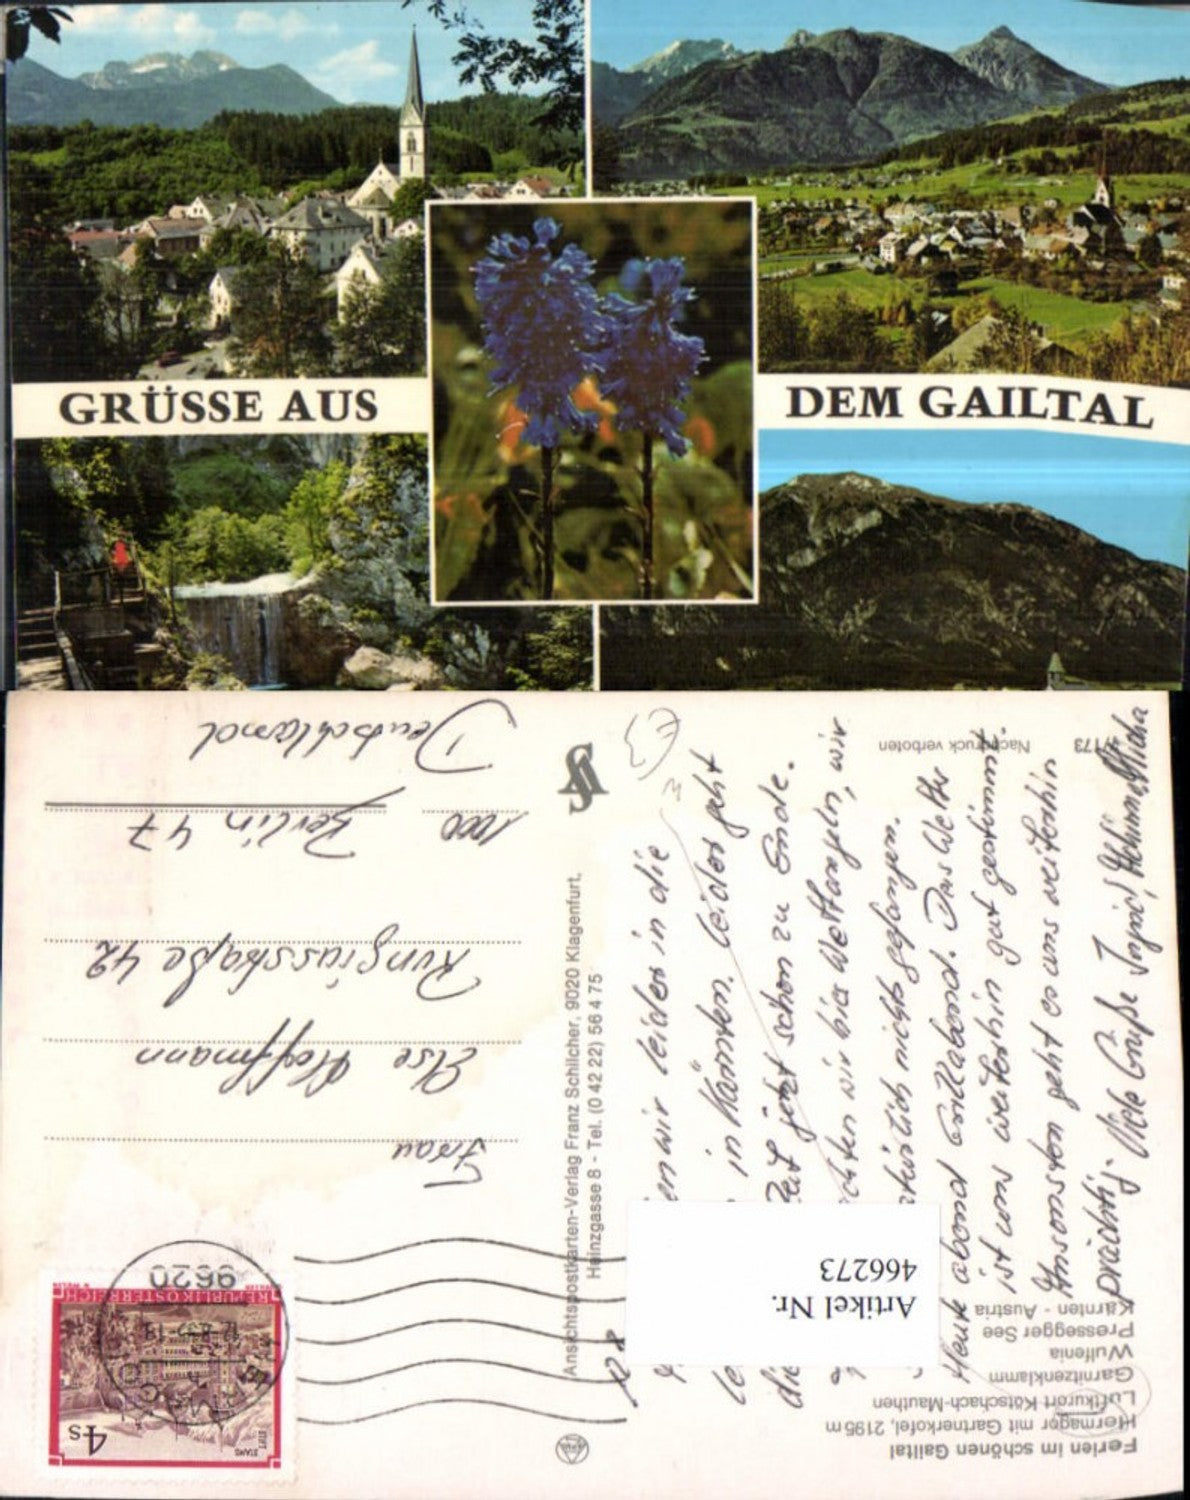 GRÜSSE AUS DEM GAILTAL
Ferien im schönen Gailtal
Hermagor mit Gartnerkofel, 2195 m
Luftkurort Kötschach-Mauthen
Garnitzenklamm
Wulfenia
Pressegger See
Kärnten - Austria
Artikel Nr.
466273
wir leider in die
in Kärnten. Leider geht
die Zeit jetzt schon zu Ende.
wir hier Wettangeln, wir
natürlich nichts gefangen.
Heute abend Grillabend. Das Wetter
ist uns weiterhin gut gestimmt.
Ansonsten geht es uns weiterhin
prächtig. Viele Grüße Ingrid,
4/173
Nachdruck verboten
Ansichtspostkarten-Verlag Franz Schilcher, 9020 Klagenfurt,
Heinzgasse 8 - Tel. (0 42 22) 56 4 75
REPUBLIK ÖSTERREICH
STIFT
STAMS
4 S
9620
Frau
Else Hoffmann
Rungiusstraße 42
1000 Berlin 47
Deutschland